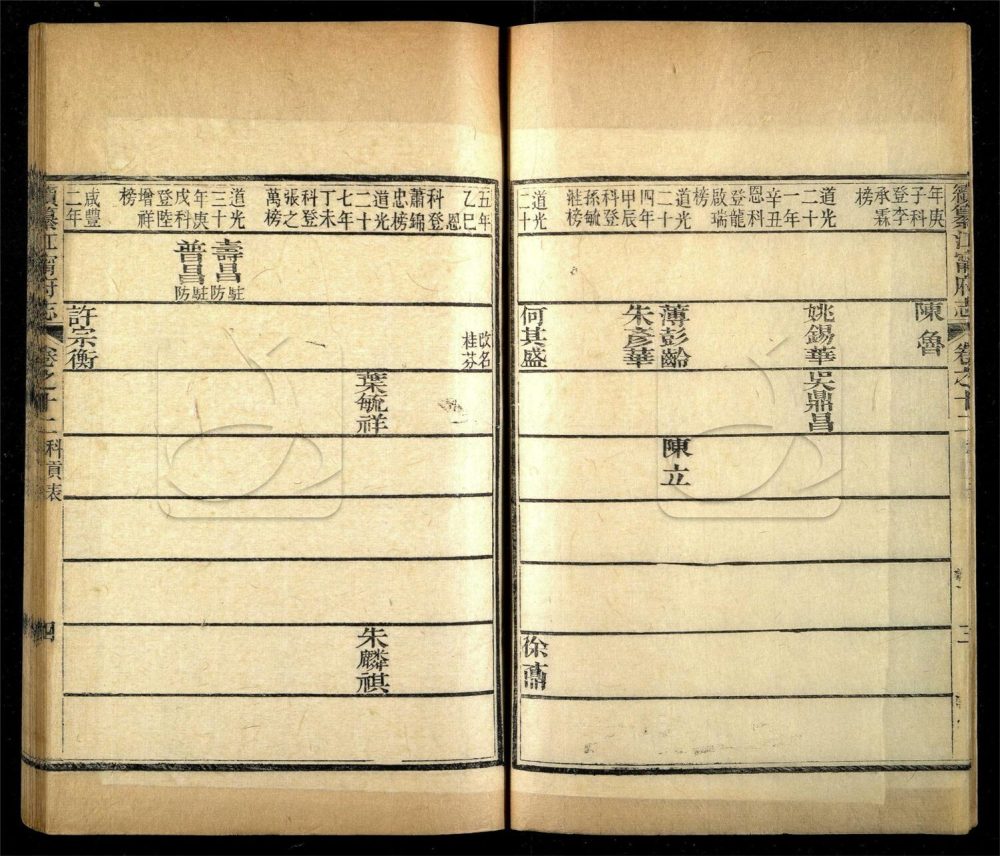 續纂江寧府志
卷之十二
三
年庚子科登李承霖榜
陳魯
道光二十一年辛丑恩科登龍啟瑞榜
姚錫華
吳鼎昌
道光二十四年甲辰科登孫毓溎榜
薄彭齡
朱彥華
陳立
道光二十
何其盛
徐鼒
五年乙巳恩科登蕭錦忠榜
改名桂芬
道光二十七年丁未科登張之萬榜
葉毓祥
朱麟祺
道光三十年庚戌科登陸增祥榜
壽昌駐防
普昌駐防
咸豐二年
許宗衡
續纂江寧府志
卷之十二
科貢表
四